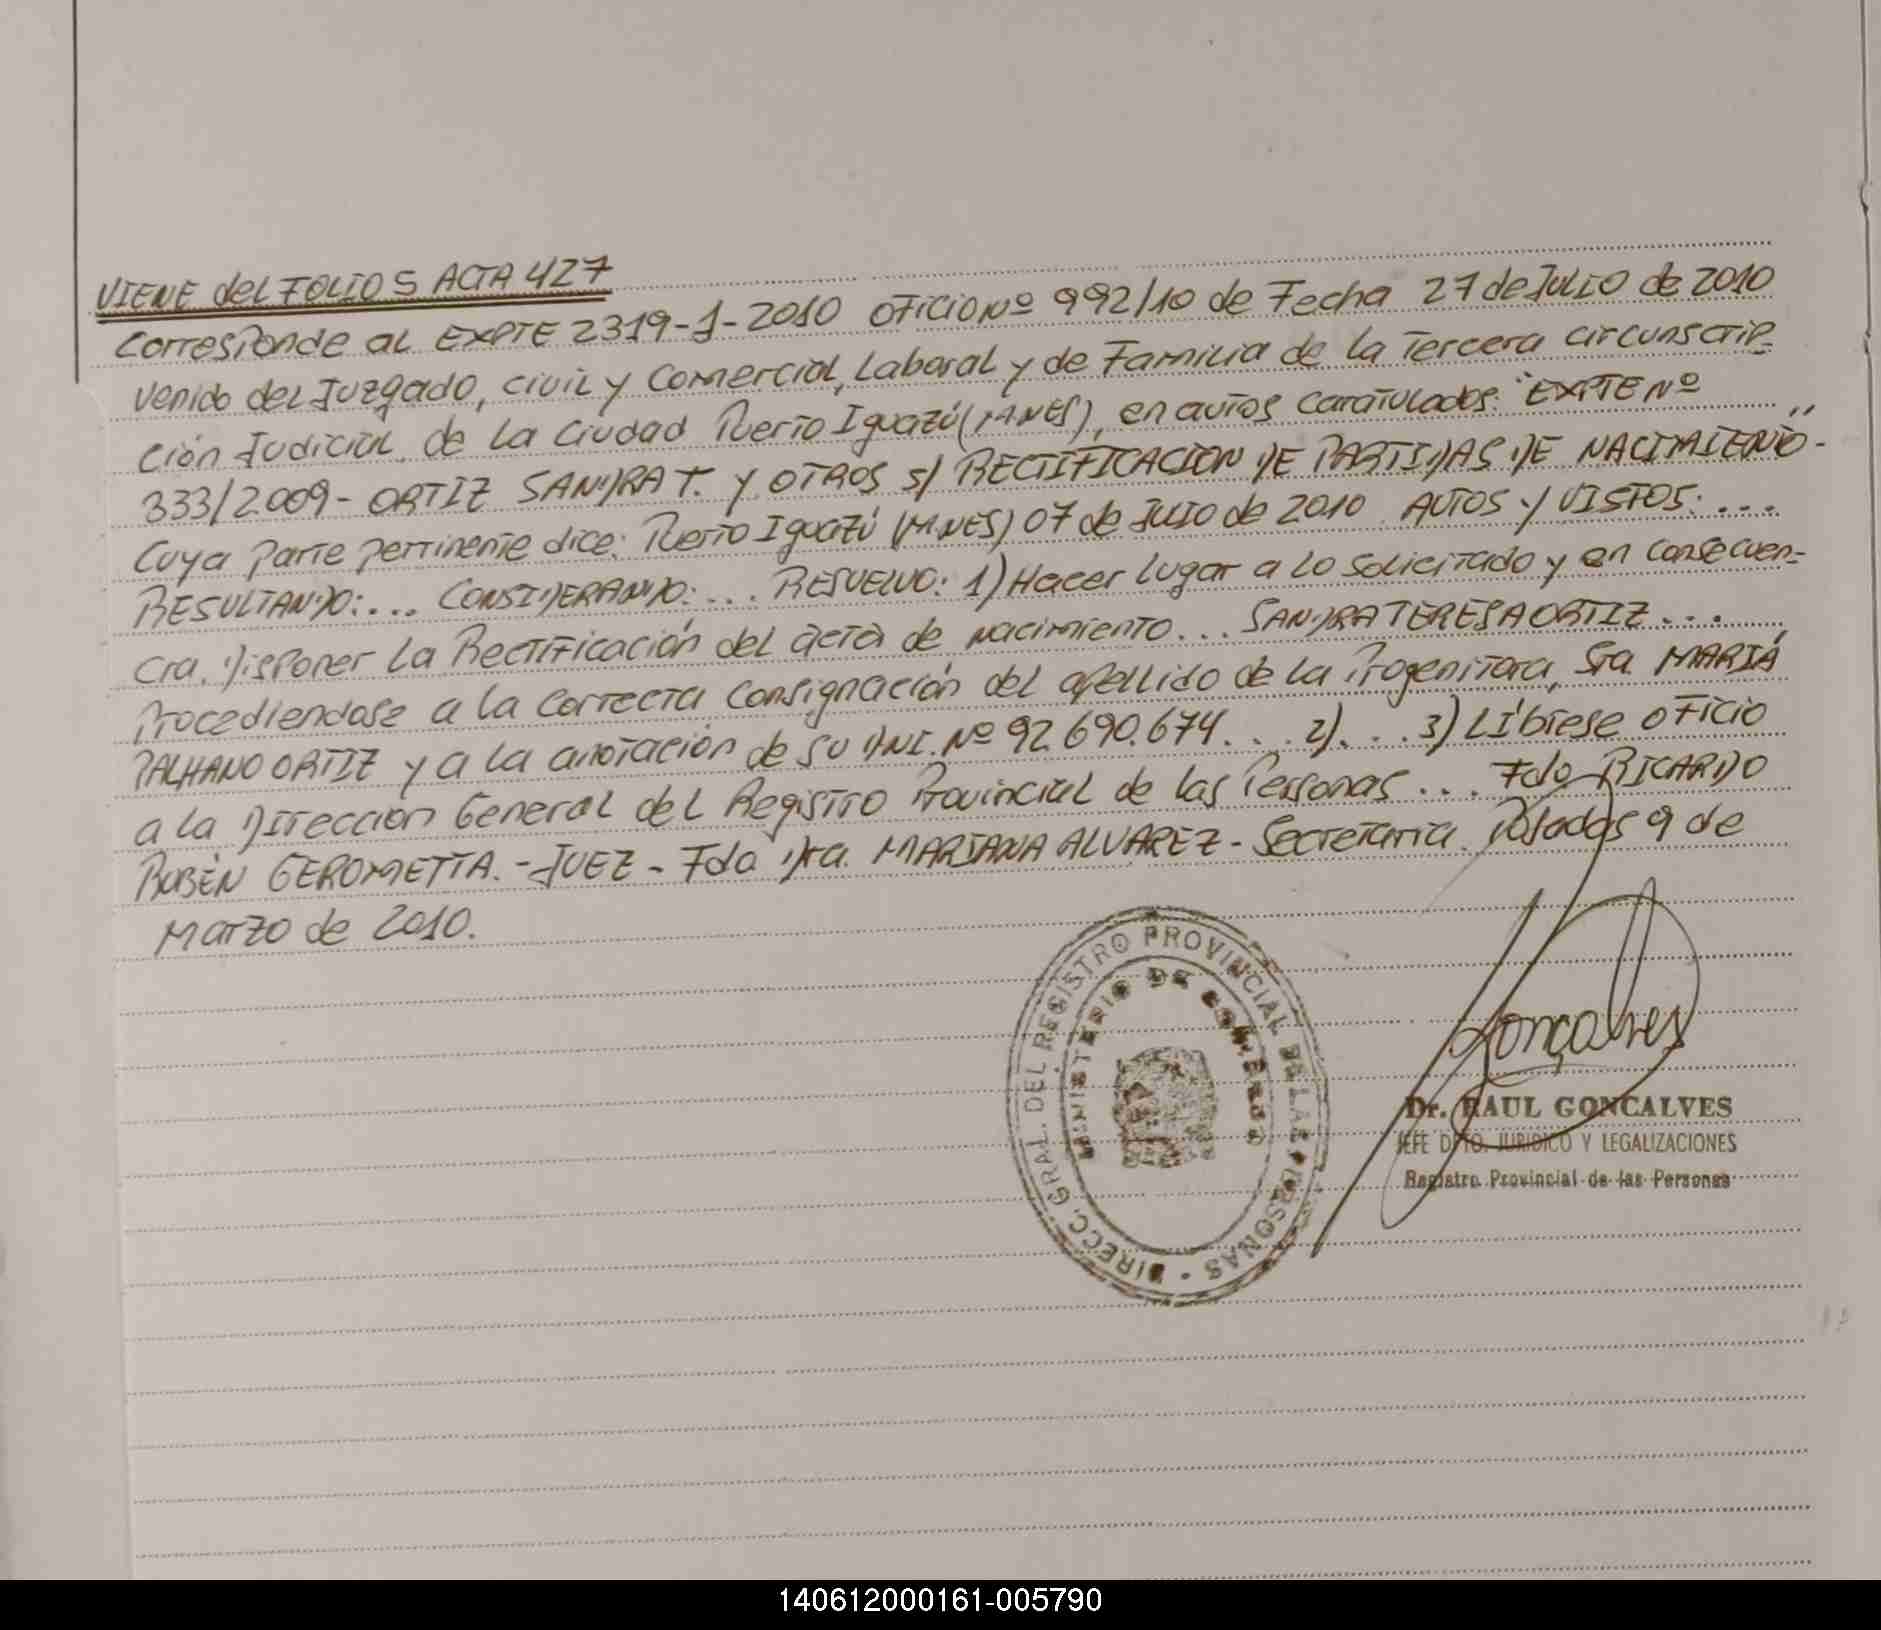 VIENE del FOLIO 5 ACTA 427
Corresponde al EXPTE 2319-J-2010 OFICIO Nº 992/10 de Fecha 27 de JULIO de 2010
venido del Juzgado, civil y Comercial, Laboral y de Familia de la Tercera circunscrip-
ción Judicial de la Ciudad Puerto Iguazú (MNES), en autos caratulados: "EXPTE Nº
333/2009 - ORTIZ SANDRA T. Y OTROS S/ RECTIFICACION DE PARTIDAS DE NACIMIENTO" -
Cuya parte pertinente dice: Puerto Iguazú (MNES) 07 de Julio de 2010. AUTOS Y VISTOS: ...
RESULTANDO: ... CONSIDERANDO: ... RESUELVO: 1) Hacer lugar a lo solicitado y en consecuen-
cia, Disponer la Rectificación del acta de nacimiento ... SANDRA TERESA ORTIZ ...
Procediendose a la correcta consignación del apellido de la Progenitora, Sra. MARIA
PALHANO ORTIZ y a la anotación de su DNI. Nº 92.690.674. .. 2). .. 3) LÍbrese oficio
a la Dirección General del Registro Provincial de las Personas ... Fdo RICARDO
RUBÉN GEROMETTA. - JUEZ - Fdo Dra. MARIANA ALVAREZ - Secretaria. Posadas 9 de
Marzo de 2010.
DIRECC. GRAL. DEL REGISTRO PROVINCIAL DE LAS PERSONAS
MINISTERIO DE GOBIERNO
Gonçalves
Dr. RAUL GONCALVES
JEFE DPTO. JURIDICO Y LEGALIZACIONES
Registro Provincial de las Personas
140612000161-005790